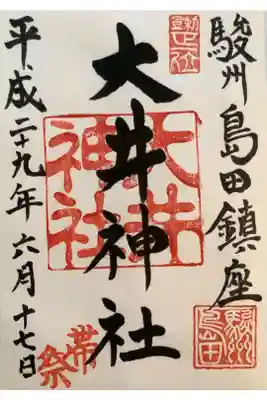 駿州島田鎮座
大井神社
平成二十九年六月十七日
大井神社
帯祭
駿州島田